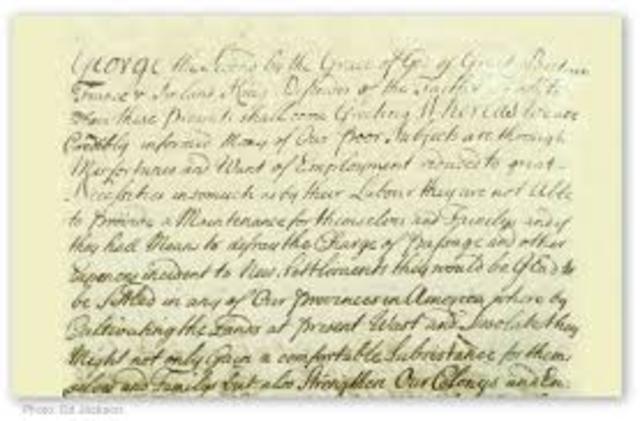 George the Second by the Grace of God of Great Britain
France & Ireland King Defender of the Faith To all to
whom these Presents shall come Greeting Whereas we are
Credibly informed Many of Our Poor Subjects are through
Misfortunes and Want of Employment reduced to great
Necessities insomuch as by their Labour they are not Able
to provide a Maintenance for themselves and Familys and if
they had Means to defray the Charge of Passage and other
Expences incident to New Settlements they would be Glad to
be Settled in any of Our Provinces in America where by
Cultivating the Lands at present Wast and Desolate they
Might not only Gain a comfortable Subsistance for them
selves and Familys but also Strengthen Our Colonys and En
Photo: Ed Jackson